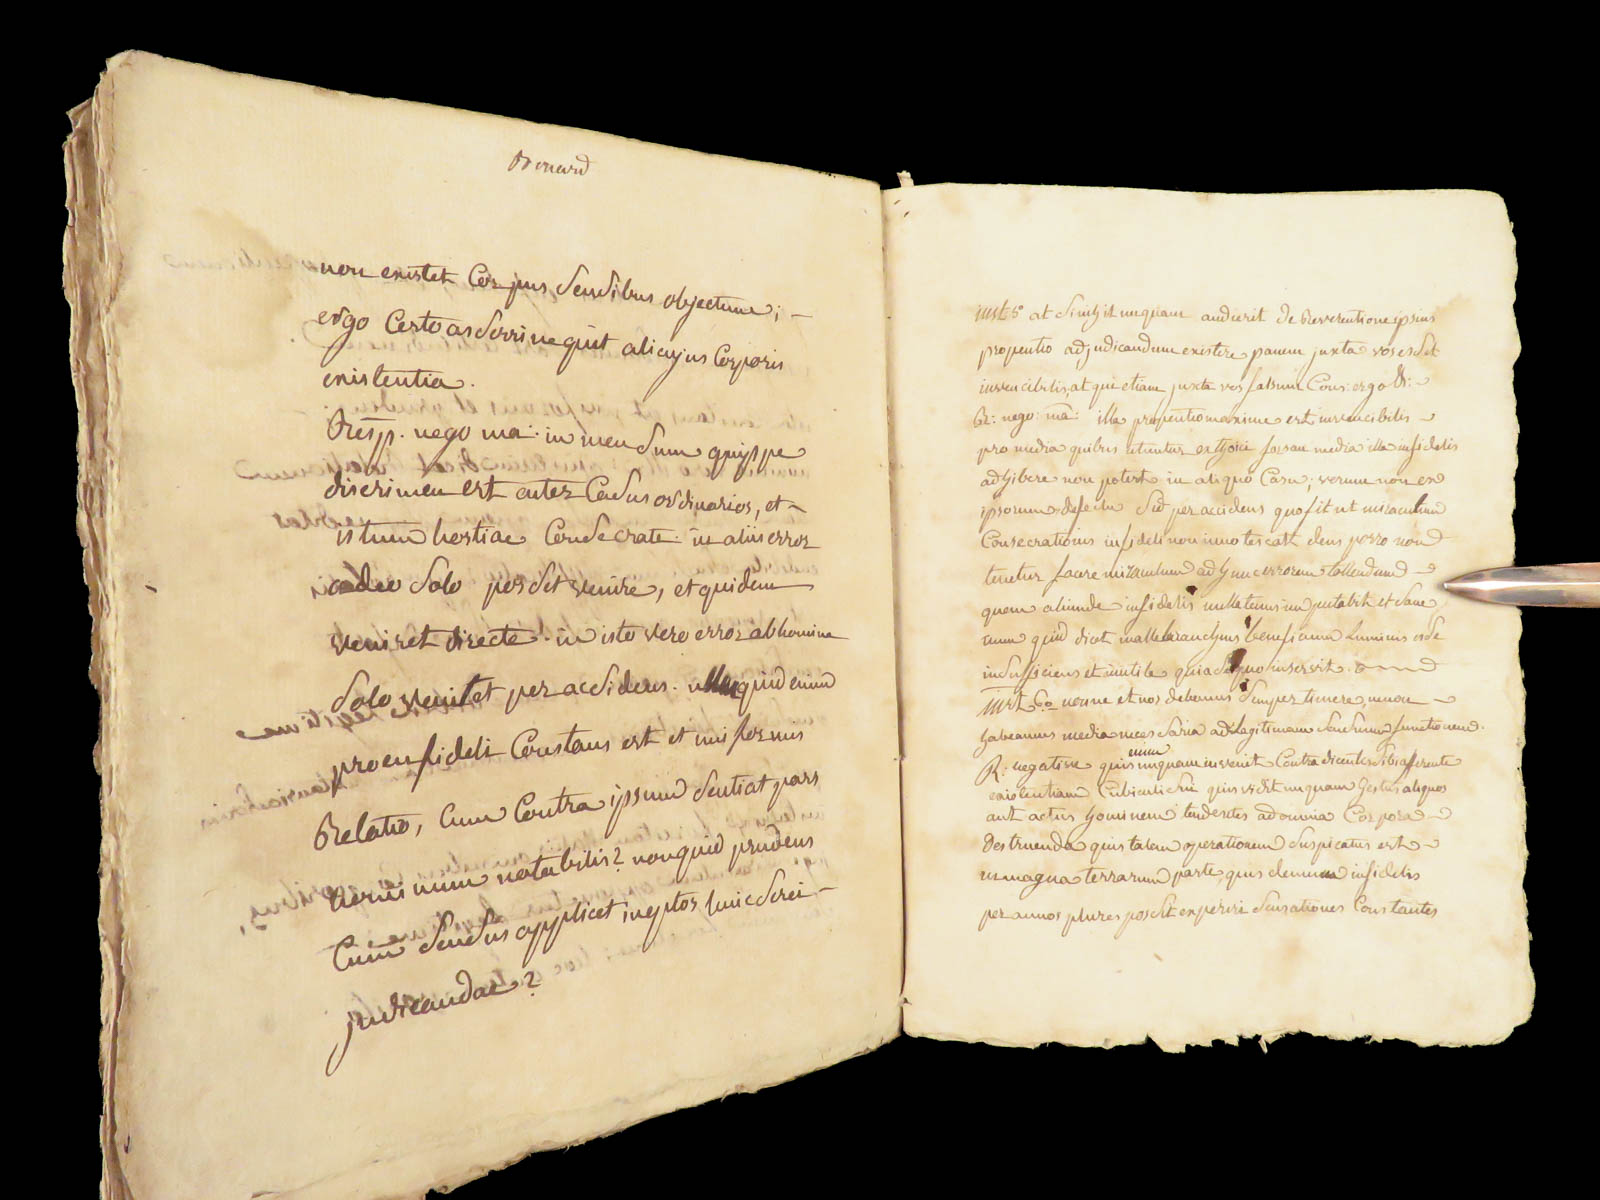 non existet Corpus Sensibus objectum; –
ergo Certo asserri nequit alicujus Corporis
existentia.
Resp. nego ma: immensum quippe
discrimen est inter Casus ordinarios, et –
istum hostiae Consecratae: in aliis error
a deo Solo posset venire, et quidem
veniret directe. in isto vero error ab homine
Solo venit et per accidens. quid enim
pro infideli Constans est et uniformis
Relatio, Cum Contra ipsum Sentiat pars
notabilis? nonquid prudens
Cum Sensus applicet ineptos huic Srei –
judicandae?
inst 5° at Si nunquam audierit de ipsius
propensio ad judicandum existere panem juxta vos esset
invincibilis, at qui etiam juxta vos falsum Cons: ergo &: –
R: nego: ma: illa propensio maxime est invincibilis –
pro media quibus utuntur forsan media illa infidelis
adhibere non potest in aliquo Casu; verum non ex
ipsorum defectu Sed per accidens quo fit ut miraculum
Consecrationis infideli non innotescat deus porro non
tenetur facere miraculum ad hunc errorem tollendum –
quem aliunde infidelis nullatenus imputabit et Sane
num quid dicet mallebranchius benefiium Luminis esse
insufficiens et inutile quia non inservit.
inst 6° nonne et nos debemus Semper timere, ne non –
habeamus media necessaria ad legitimam Sensuum functionem.
R: negative quis enim unquam invenit Contradicentes Sibi asserente
existentiam Cubiculi Sui quis vidit unquam gestus aliquos
aut actus hominem tendentes ad omnia Corpora –
destruenda quis talem operationem Suspicatus est –
in magna terrarum parte, quis demum infidelis
per annos plures possit experiri Sensationes Constantes